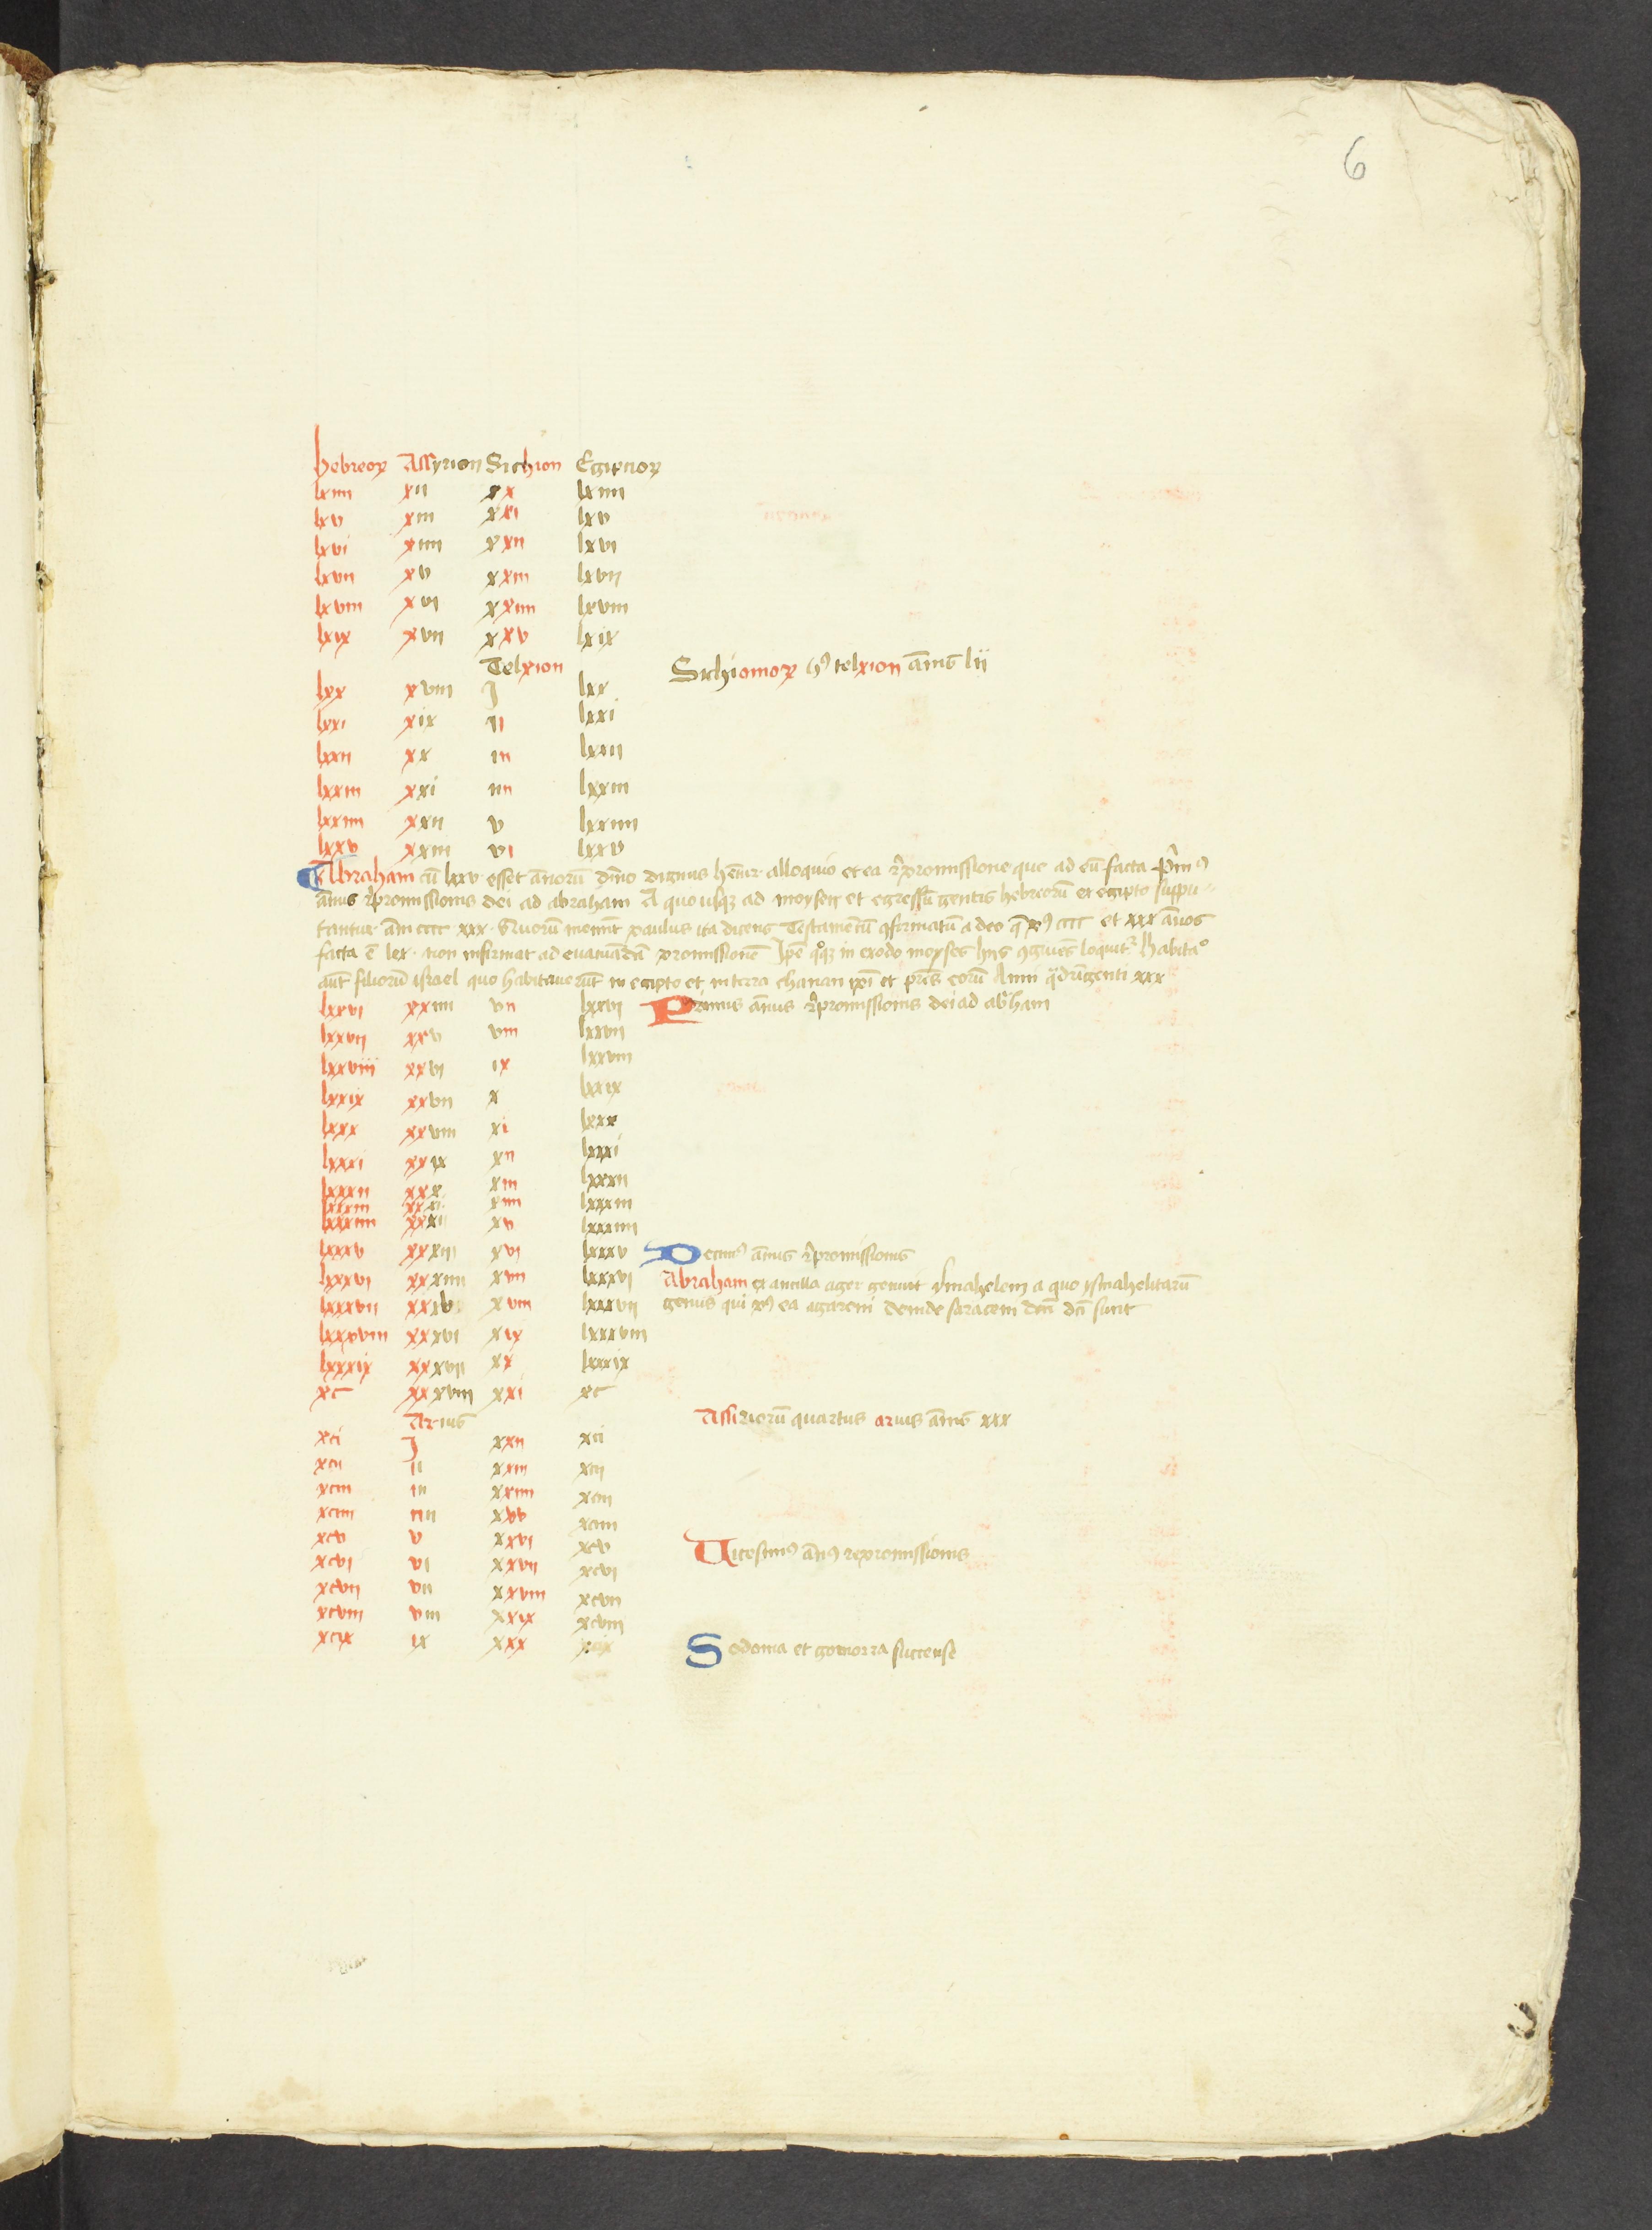 6
hebreoꝝ Assyrion Sichion Egiptioꝝ
lxiiii xii xx lxiiii
lxv xiii xxi lxv
lxvi xiiii xxii lxvi
lxvii xv xxiii lxvii
lxviii xvi xxiiii lxviii
lxix xvii xxv lxix
Telxion Sichiomoꝝ telxion ānis lii
lxx xviii j lxx
lxxi xix ii lxxi
lxxii xx iii lxxii
lxxiii xxi iiii lxxiii
lxxiiii xxii v lxxiiii
lxxv xxiii vi lxxv
Abraham cū lxxv esset ānorū dīno dignus alloquio et ea rͥpromissione que ad eū facta pͥmꝰ
ānus rͥpromissionis dei ad abraham A quo usqꝫ ad moysen et egressū gentis hebreorū ex egipto suppu-
tantur āni cccc xxx. Quorū meminit paulus ita dicens Testamentū ꝯfirmatū a deo pꝰ cccc et xxx ānos
facta ē lex non infirmat ad evacuādā promissionē Ipē qͦqꝫ in exodo moyses loquitᷣ habitaͦ
aūt filiorū israel quo habitaverūt in egipto et in terra chanan ipi et pr̄es eorū Anni qͣdrīgenti xxx
lxxvi xxiiii vii lxxvi Primus ānus rͥpromissionis dei ad abͥham
lxxvii xxv viii lxxvii
lxxviii xxvi ix lxxviii
lxxix xxvii x lxxix
lxxx xxviii xi lxxx
lxxxi xxix xii lxxxi
lxxxii xxx xiii lxxxii
lxxxiii xxxi xiiii lxxxiii
lxxxiiii xxxii xv lxxxiiii
lxxxv xxxiii xvi lxxxv Decimꝰ ānus rͥpromissionis
lxxxvi xxxiiii xvii lxxxvi Abraham ex ancilla agar genuit ysmahelem a quo ysmahelitarū
lxxxvii xxxv xviii lxxxvii genus qui pꝰ ea agareni deinde saraceni dcī sunt
lxxxviii xxxvi xix lxxxviii
lxxxix xxxvii xx lxxxix
xc xxxviii xxi xc
Arius Assiriorū quartus arius ānis xxx
xci j xxii xci
xcii ii xxiii xcii
xciii iii xxiiii xciii
xciiii iiii xxv xciiii
xcv v xxvi xcv Vicesimꝰ ānꝰ repromissionis
xcvi vi xxvii xcvi
xcvii vii xxviii xcvii
xcviii viii xxix xcviii
xcix ix xxx xcix Sodoma et gomorra succense